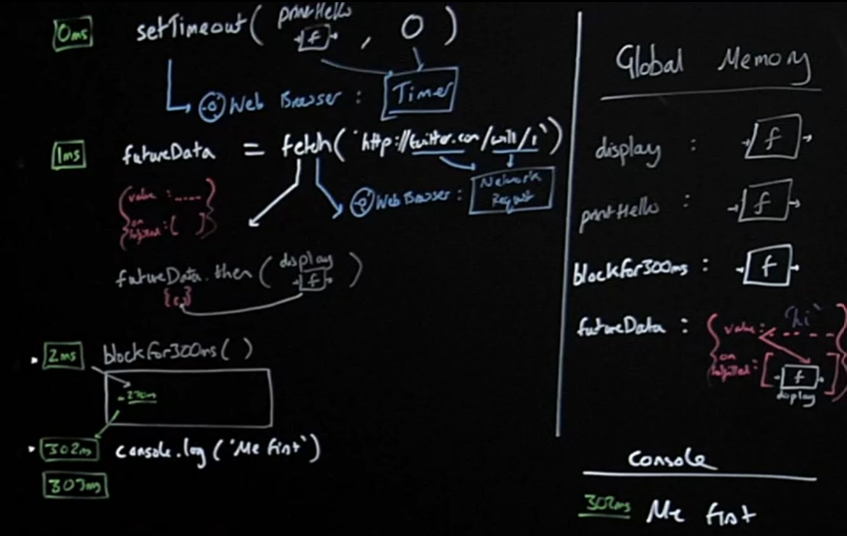 0ms setTimeout( printHello f , 0 )
@ Web Browser : Timer
1ms futureData = fetch('http://twitter.com/will/1')
@ Web Browser : Network Request
{ value : .....
on fulfilled : [ ] }
futureData.then ( display f )
2ms blockfor300ms ( )
302ms console.log ('Me first')
303ms
Global Memory
display : f
printHello : f
blockfor300ms : f
futureData : { value : 'hi'
on fulfilled : [ f ] }
display
Console
302ms Me first